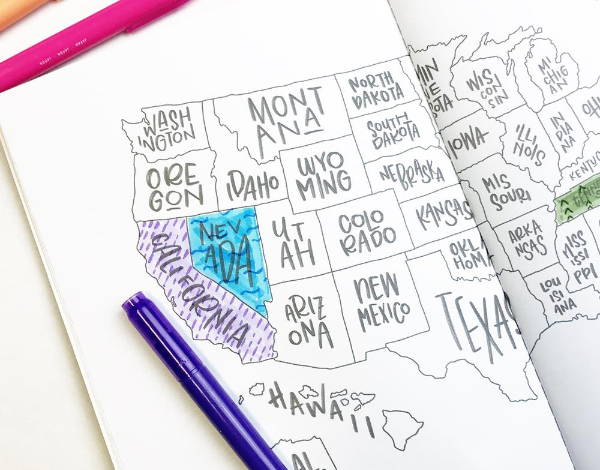 WASH
INGTON
MONT
ANA
NORTH
DAKOTA
SOUTH
DAKOTA
ORE
GON
IDAHO
WYO
MING
NEBRASKA
CALIFORNIA
NEV
ADA
UT
AH
COLO
RADO
KANSAS
ARIZ
ONA
NEW
MEXICO
OKL
HOM
TEXAS
HAWAI'I
AL
MIN
NE
OTA
WIS
CON
SIN
MI
CHIG
AN
IOWA
ILLI
NOIS
IN
DIA
NA
OH
MIS
SOURI
KENTUC
ARKA
NSAS
MISS
ISSI
PPI
LOU
ISI
ANA